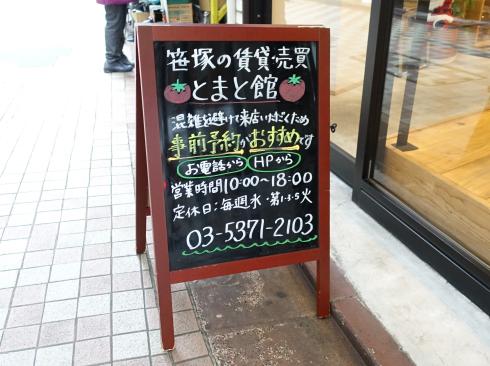 笹塚の賃貸・売買
とまと館
混雑を避けて来店いただくため
事前予約がおすすめです
お電話から HPから
営業時間10:00~18:00
定休日:毎週水・第1・3・5火
03-5371-2103